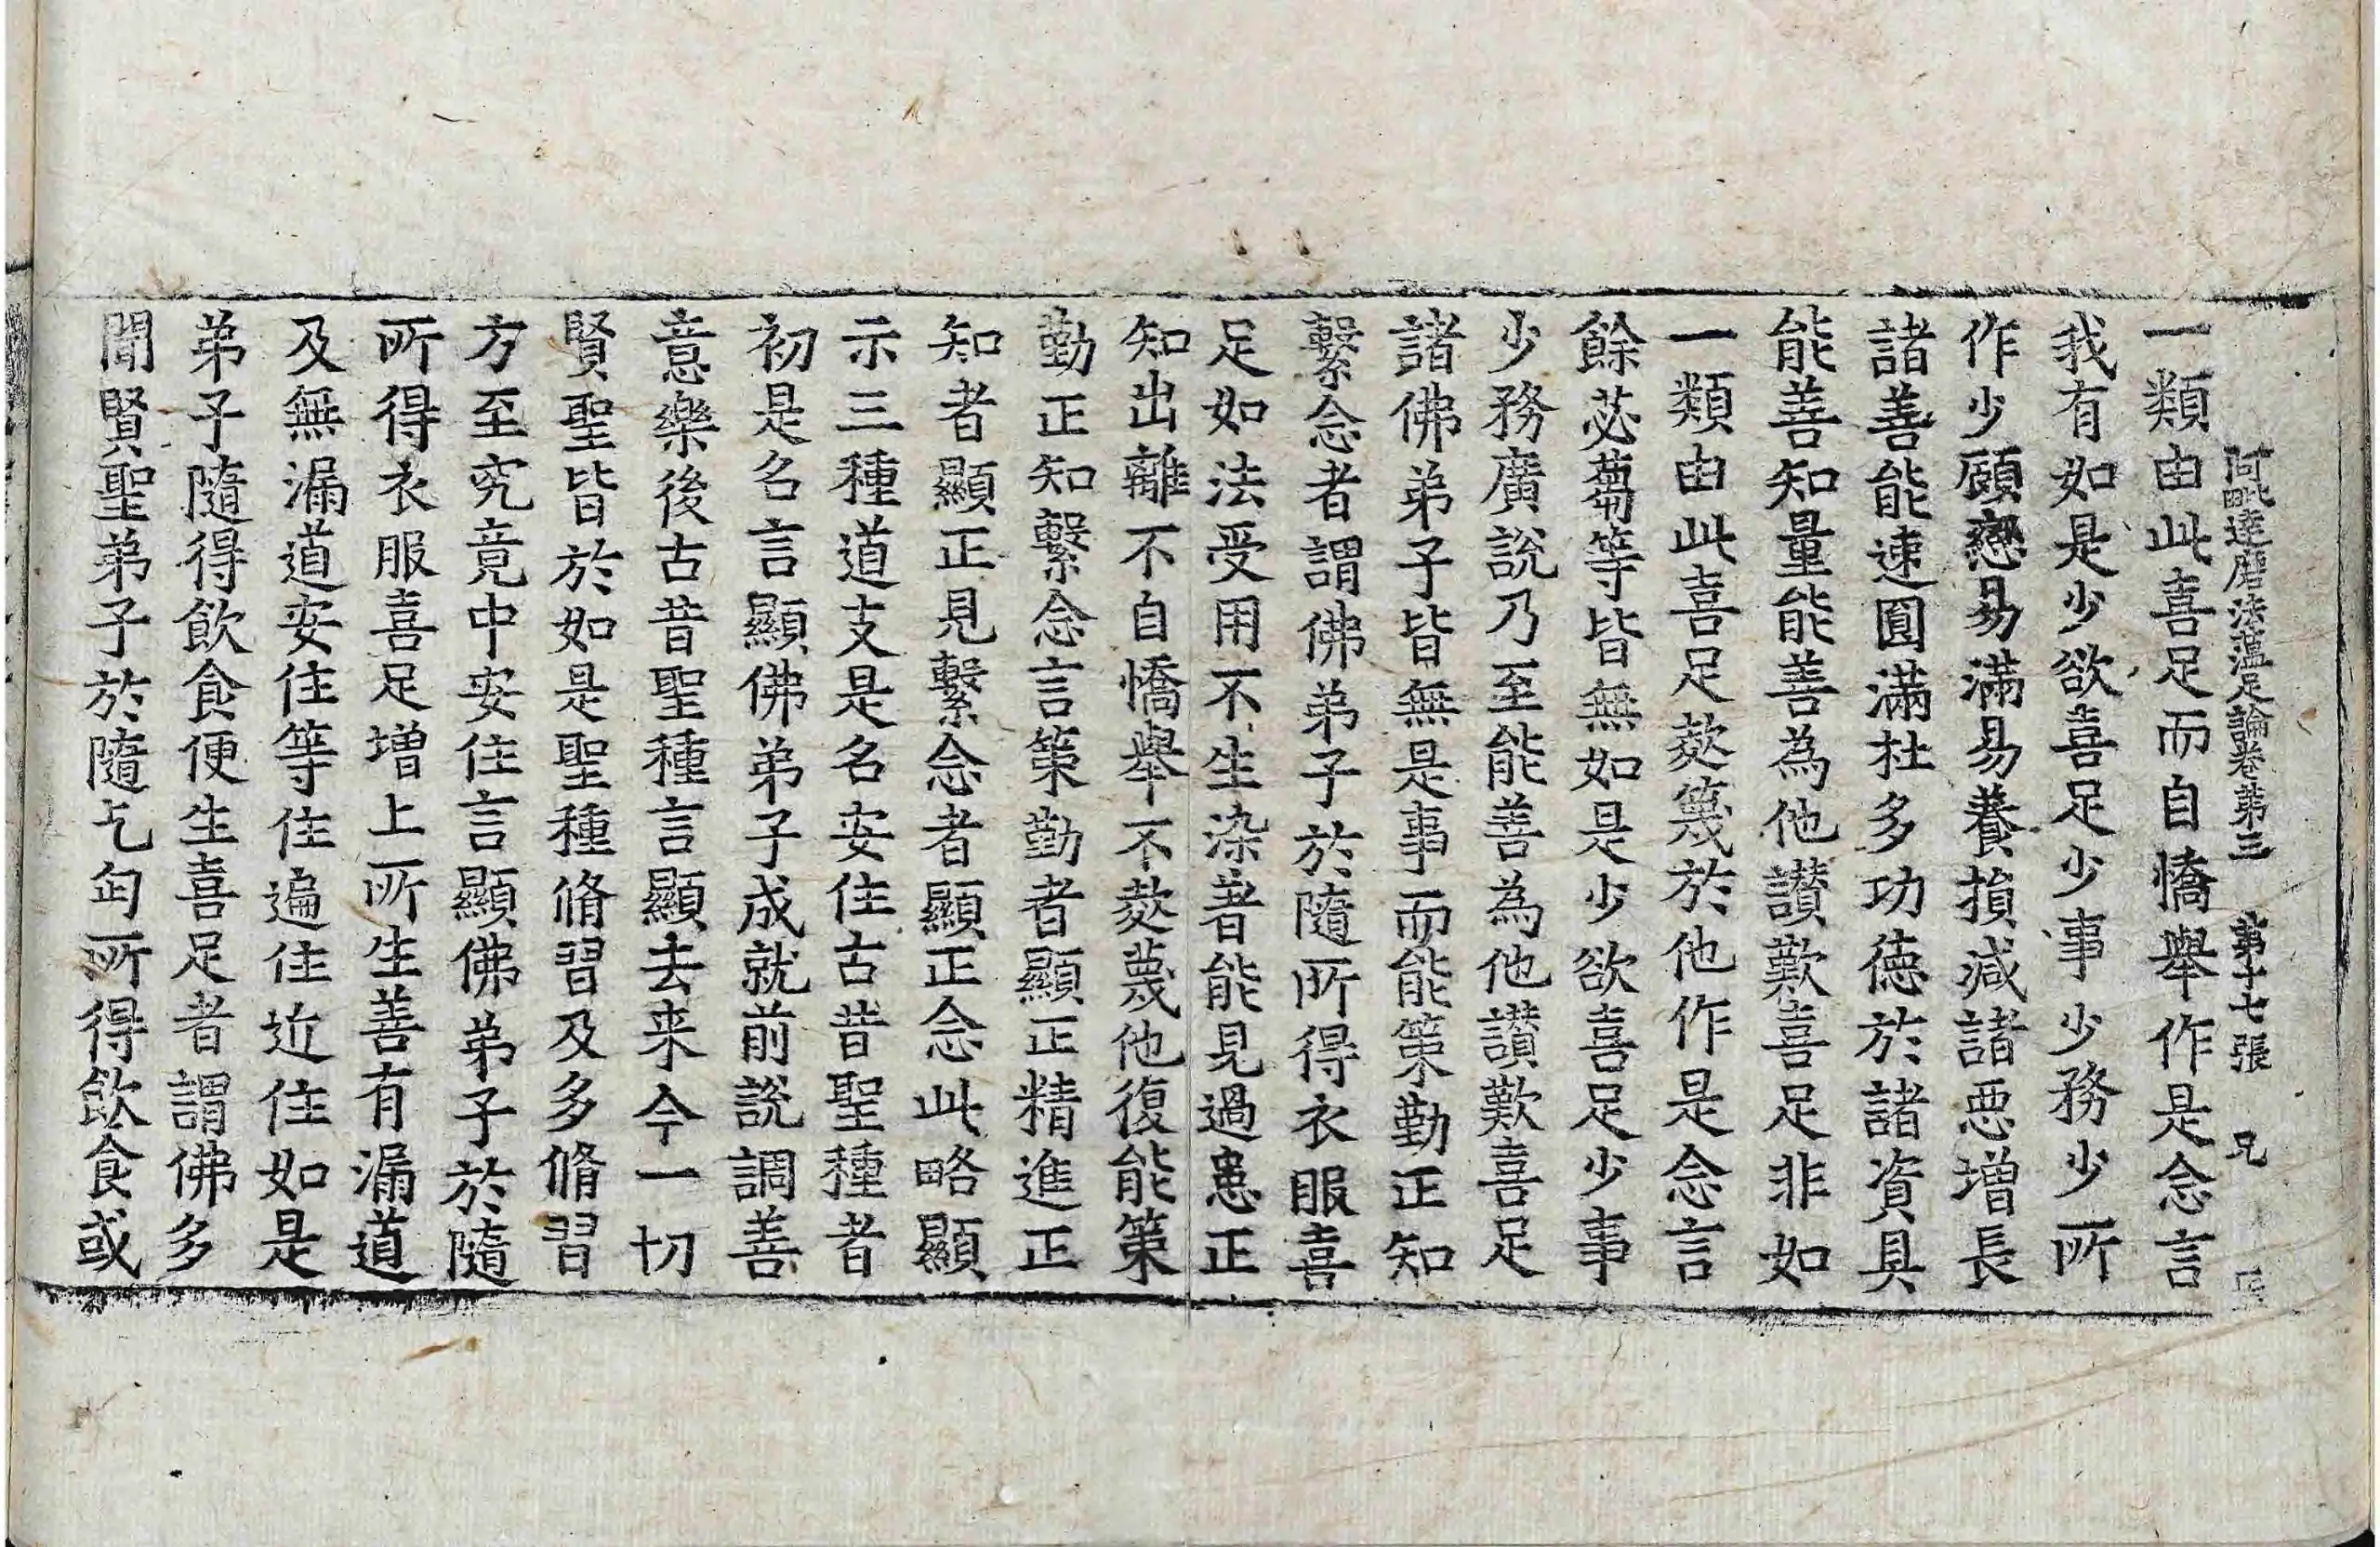 阿毗達磨法蘊足論卷第三 第十七張 兄
一類由此喜足而自憍舉作是念言
我有如是少欲喜足少事少務少所
作少顧戀易滿易養損减諸惡增長
諸善能速圓滿杜多功德於諸資具
能善知量能善為他讃歎喜足非如
一類由此喜足欻篾於他作是念言
餘苾蒭等皆無如是少欲喜足少事
少務廣說乃至能善為他讃歎喜足
諸佛弟子皆無是事而能策勤正知
繫念者謂佛弟子於隨所得衣服喜
足如法受用不生染著能見過患正
知出離不自憍舉不欻蔑他復能策
勤正知繫念言策勤者顯正精進正
知者顯正見繫念者顯正念此略顯
示三種道支是名安住古昔聖種者
初是名言顯佛弟子成就前說調善
意樂後古昔聖種言顯去来今一切
賢聖皆於如是聖種脩習及多脩習
方至究竟中安住言顯佛弟子於隨
所得衣服喜足增上所生善有漏道
及無漏道安住等住遍住近住如是
弟子隨得飲食便生喜足者謂佛多
聞賢聖弟子於隨乞匃所得飲食或